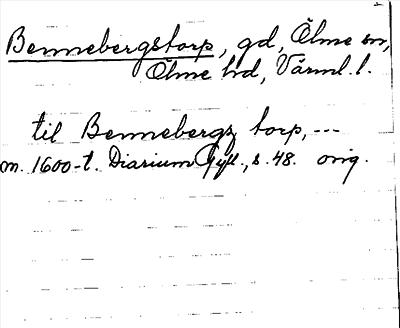 Bennebergstorp, gd, Ölme sn,
Ölme hd, Värml. l.
til Bennebergz torp, ---
m. 1600-t. Diarium Gyll., s. 48. orig.